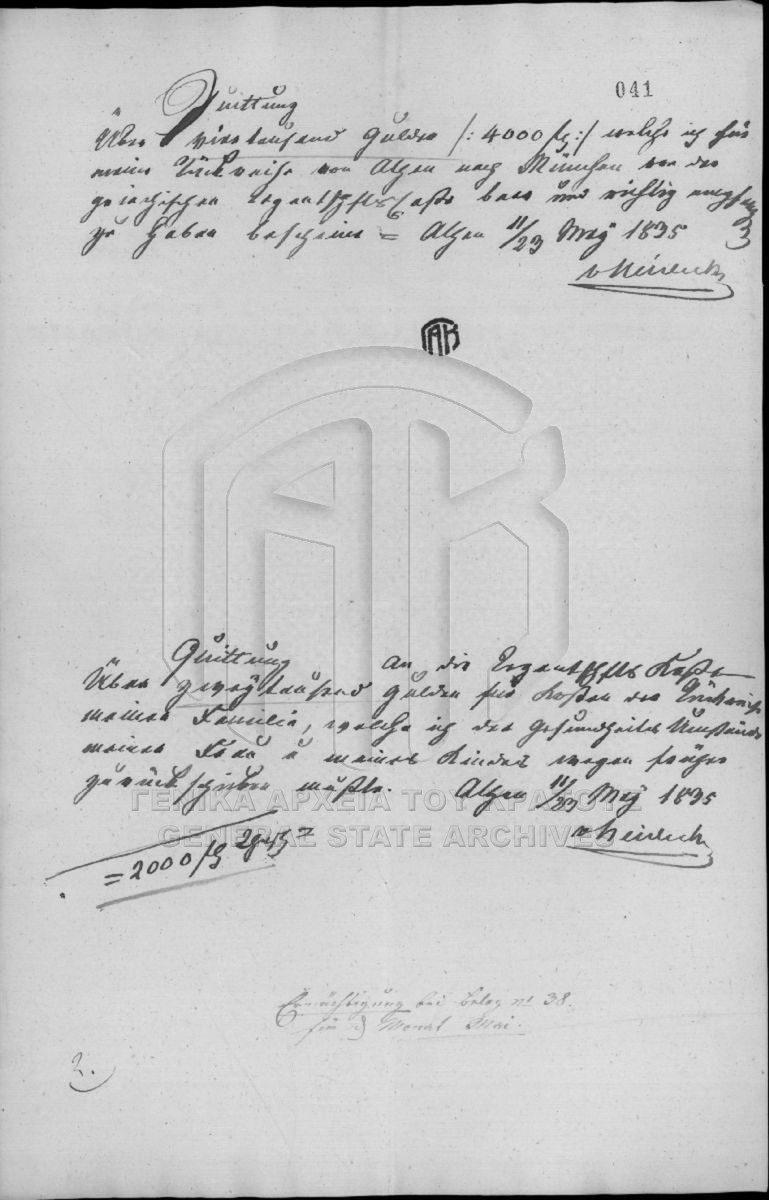 041
Quittung
Über viertausend Gulden /: 4000 fl :/ welche ich für
meine Rückreise von Athen nach München von der
griechischen Regentschfts Casse baar und richtig empfangen
zu haben bescheine = Athen 11/23 May 1835
v Heideck
ΓΑΚ
Quittung an die Regentschfts Kasse
Über zweytausend Gulden für Kosten der Rückreise
meiner Familie, welche ich der Gesundheits Umstände
meiner Frau u meines Kindes wegen früher
zurück schicken mußte. Athen 11/23 May 1835
v Heideck
= 2000 fl
ΓΕΝΙΚΑ ΑΡΧΕΙΑ ΤΟΥ ΚΡΑΤΟΥΣ
GENERAL STATE ARCHIVES
Ermächtigung bei Beleg no 38.
für d Monat Mai.
2.